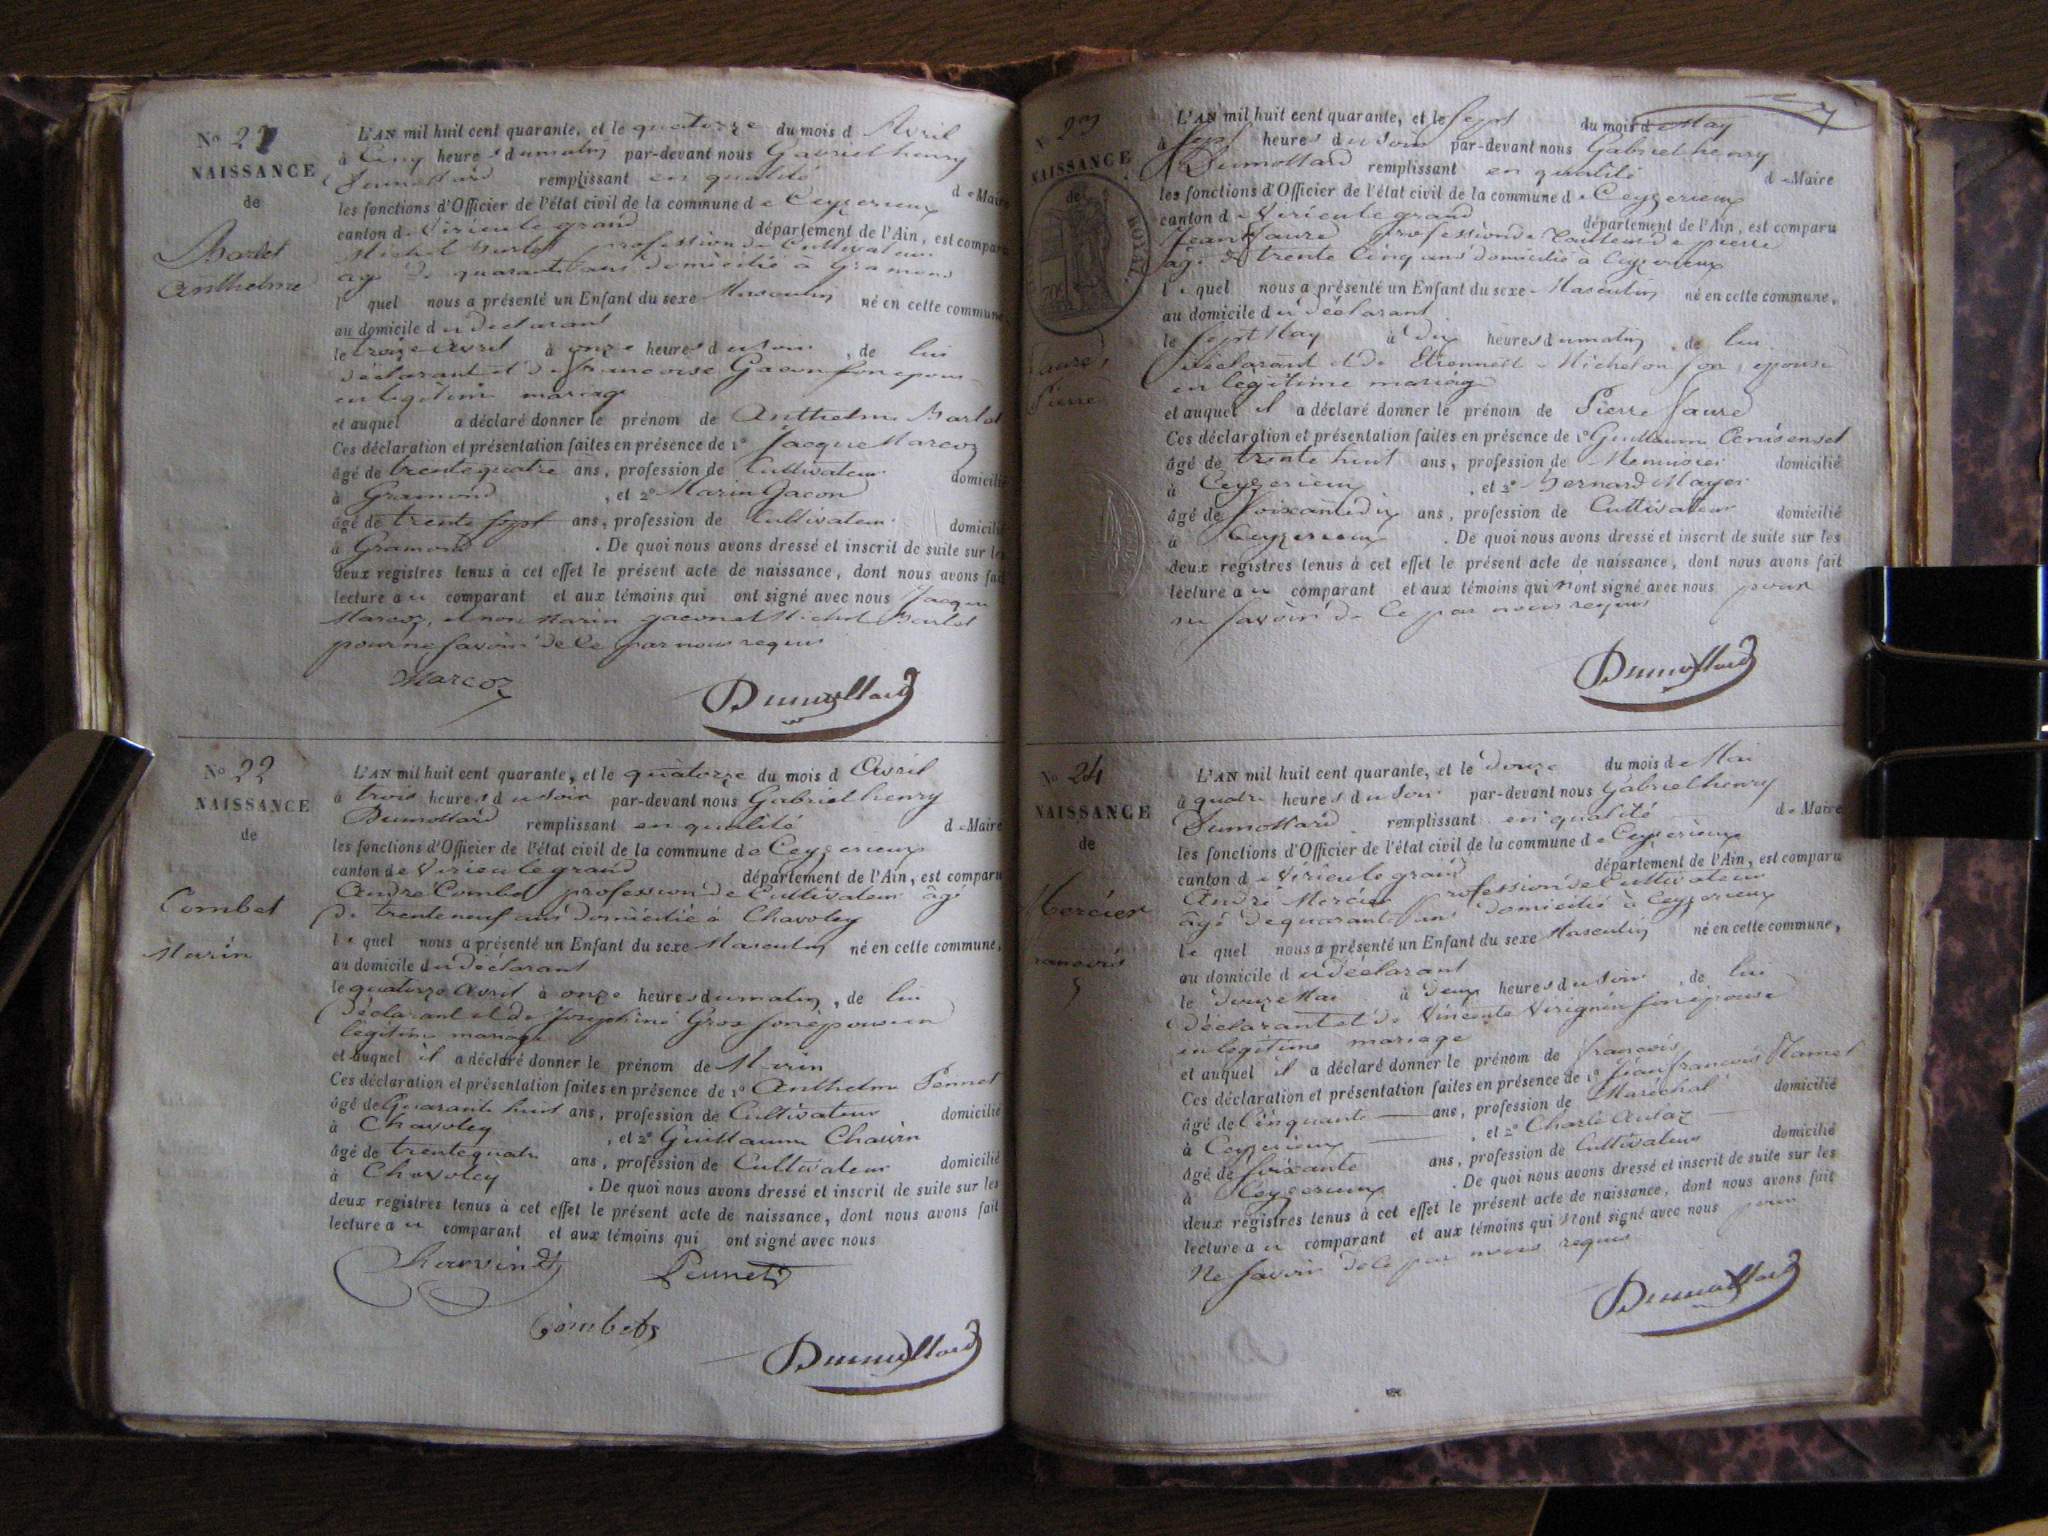 No 21
NAISSANCE
de
Barlet
Anthelme
L'AN mil huit cent quarante, et le quatorze du mois d Avril
à Cinq heures du matin par-devant nous Gabriel henry
Dumollard remplissant en qualité de Maire
les fonctions d'Officier de l'état civil de la commune de Ceyzerieux
canton de Virieu le grand département de l'Ain, est comparu
Michel Barlet profession de Cultivateur
agé de quarante ans domicilié à Gramond
l quel nous a présenté un Enfant du sexe Masculin né en cette commune,
au domicile du declarant
le treize Avril à onze heures du soir, de lui
déclarant et de francoise Gacon son epouse
en legitime mariage
et auquel a déclaré donner le prénom de Anthelme Barlet
Ces déclaration et présentation faites en présence de 1º Jacque Marcoz
âgé de trente quatre ans, profession de Cultivateur domicilié
à Gramond, et 2º Marin Gacon
âgé de trente sept ans, profession de Cultivateur domicilié
à Gramond. De quoi nous avons dressé et inscrit de suite sur les
deux registres tenus à cet effet le présent acte de naissance, dont nous avons fait
lecture au comparant et aux témoins qui ont signé avec nous Jacque
Marcoz, et non Marin gacon et Michel Barlet
pour ne savoir de ce par nous requis
Marcoz
Dumollard
No 22
NAISSANCE
de
Combet
Marin
L'AN mil huit cent quarante, et le quatorze du mois d Avril
à trois heures du soir par-devant nous Gabriel henry
Dumollard remplissant en qualité de Maire
les fonctions d'Officier de l'état civil de la commune de Ceyzerieux
canton de Virieu le grand département de l'Ain, est comparu
André Combet profession de Cultivateur âgé
de trente neuf ans domicilié à Chavoley
le quel nous a présenté un Enfant du sexe Masculin né en cette commune,
au domicile du déclarant
le quatorze Avril à onze heures du matin, de lui
déclarant et de Joséphine Gros son épouse en
légitime mariage
et auquel il a déclaré donner le prénom de Marin
Ces déclaration et présentation faites en présence de 1º Anthelme Pennet
âgé de Quarante huit ans, profession de Cultivateur domicilié
à Chavoley, et 2º Guillaume Chauvin
âgé de trente quatre ans, profession de Cultivateur domicilié
à Chavoley. De quoi nous avons dressé et inscrit de suite sur les
deux registres tenus à cet effet le présent acte de naissance, dont nous avons fait
lecture au comparant et aux témoins qui ont signé avec nous
Chauvin Pennet
Combet
Dumollard
N 23
NAISSANCE
de
ROYAL
faure,
Pierre
L'AN mil huit cent quarante, et le sept du mois de May
à sept heures du soir par-devant nous Gabriel henry
Dumollard remplissant en qualité de Maire
les fonctions d'Officier de l'état civil de la commune de Ceyzerieux
canton de Virieu le grand département de l'Ain, est comparu
Jean faure profession de tailleur de pierre
âgé de trente Cinq ans domicilié à Ceyzerieux
le quel nous a présenté un Enfant du sexe Masculin né en cette commune,
au domicile du déclarant
le sept May à dix heures du matin, de lui
déclarant et de Etiennette Michelon son épouse
en legitime mariage
et auquel il a déclaré donner le prénom de Pierre faure
Ces déclaration et présentation faites en présence de 1º Guillaume
âgé de trente huit ans, profession de Menuisier domicilié
à Ceyzerieux, et 2º Bernard Mayer
âgé de soixante dix ans, profession de Cultivateur domicilié
à Ceyzerieux. De quoi nous avons dressé et inscrit de suite sur les
deux registres tenus à cet effet le présent acte de naissance, dont nous avons fait
lecture au comparant et aux témoins qui n'ont signé avec nous pour
ne savoir de ce par nous requis
Dumollard
No 24
NAISSANCE
de
Mercier
francois
L'AN mil huit cent quarante, et le douze du mois de Mai
à quatre heures du soir par-devant nous Gabriel henry
Dumollard remplissant en qualité de Maire
les fonctions d'Officier de l'état civil de la commune de Ceyzerieux
canton de Virieu le grand département de l'Ain, est comparu
André Mercier profession de Cultivateur
âgé de quarante ans domicilié à Ceyzerieux
le quel nous a présenté un Enfant du sexe Masculin né en cette commune,
au domicile du déclarant
le douze Mai à deux heures du soir, de lui
déclarant et de Vincente Virignin son épouse
en legitime mariage
et auquel il a déclaré donner le prénom de françois
Ces déclaration et présentation faites en présence de 1º Jean francois Ramel
âgé de Cinquante ans, profession de Maréchal domicilié
à Ceyzerieux, et 2º Charle
âgé de soixante ans, profession de Cultivateur domicilié
à Ceyzerieux. De quoi nous avons dressé et inscrit de suite sur les
deux registres tenus à cet effet le présent acte de naissance, dont nous avons fait
lecture au comparant et aux témoins qui n'ont signé avec nous pour
Ne savoir de ce par nous requis
Dumollard